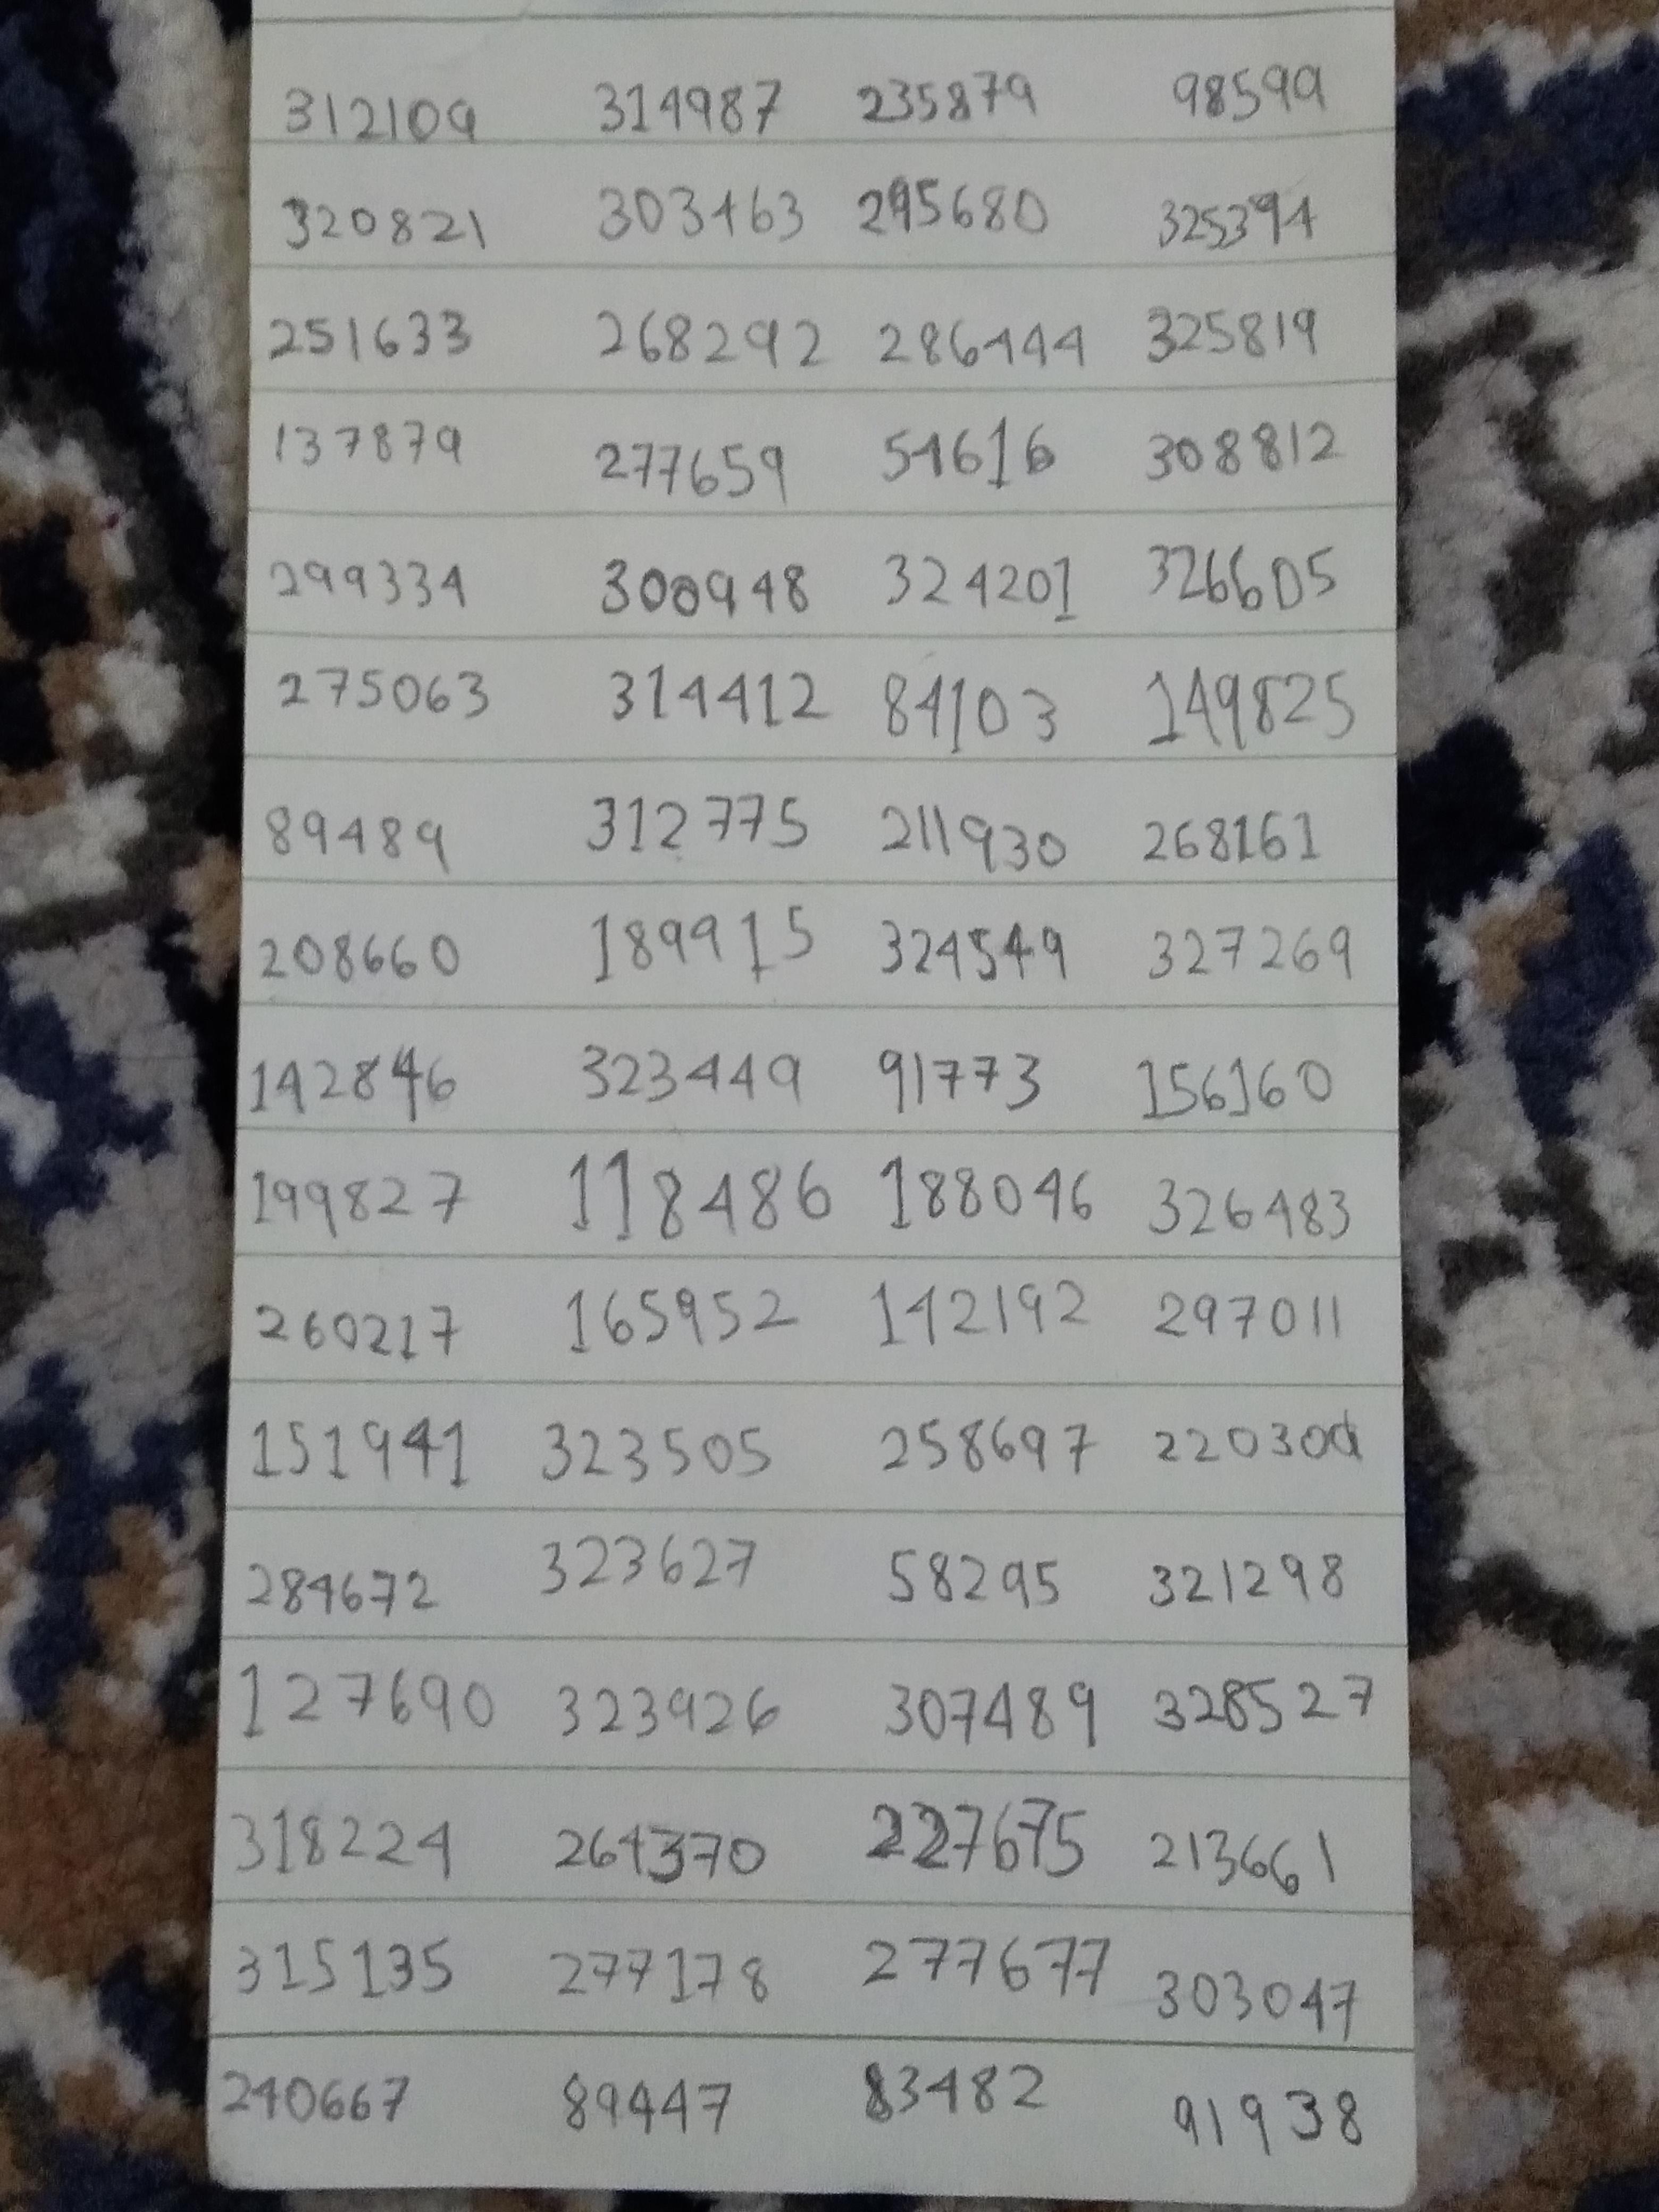 312109 314987 235879 98599
320821 303463 295680 325394
251633 268292 286444 325819
137879 277659 54616 308812
299334 300948 324201 326605
275063 314412 84103 149825
89489 312775 211930 268161
208660 189915 324549 327269
142846 323449 91773 156160
199827 118486 188046 326483
260217 165952 142192 297011
151941 323505 258697 220309
284672 323627 58295 321298
127690 323926 307489 328527
318224 264370 227675 213661
315135 277178 277677 303047
240667 89447 83482 91938